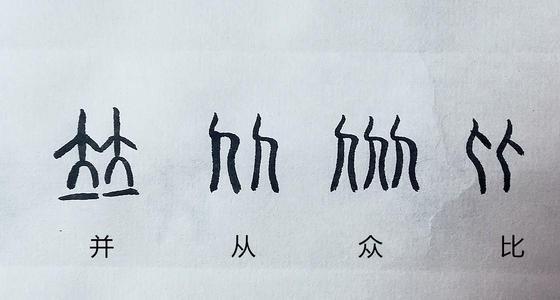 并 从 众 比